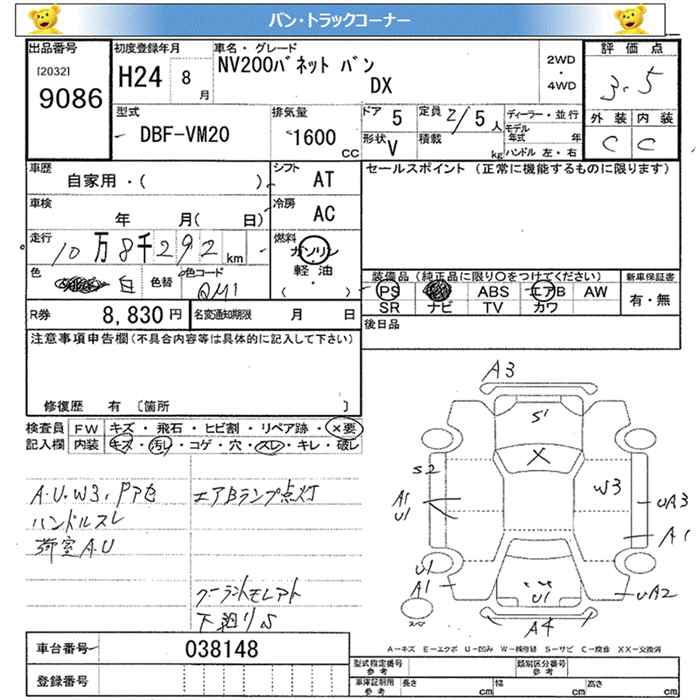 バン・トラックコーナー
出品番号
[2032]
9086
初度登録年月
H24 8 月
車名・グレード
NV200バネット バン
DX
2WD
・
4WD
評価点
3.5
外装 内装
C C
型式
DBF-VM20
排気量
1600 CC
ドア 5
定員 2/5 人
形状 V
積載 kg
ディーラー・並行
モデル年式 年
ハンドル 左・右
車歴
自家用・( )
シフト AT
セールスポイント (正常に機能するものに限ります)
車検
年 月( 日)
冷房 AC
走行
10万8千292 km
燃料
ガソリン
軽油
( ・ )
色 白
色替
色コード
QM1
装備品 (純正品に限り○をつけてください)
PS ABS エアB AW
SR ナビ TV カワ
新車保証書
有・無
R券 8,830円
名変通知期限 月 日
後日品
注意事項申告欄(不具合内容等は具体的に記入して下さい)
修復歴 有 [箇所 ]
検査員記入欄
FW キズ・飛石・ヒビ割・リペア跡・×要
内装 キズ・汚レ・コゲ・穴・スレ・キレ・破レ
A.U.W3.
エアBランプ点灯
ハンドルスレ
荷室A.U
下廻りS
A3
S1
X
S2
A1
U1
W3
UA3
A1
U1
A1
U1
UA2
A4
スペア
A-キズ E-エクボ U-凹み W-補修跡 S-サビ C-腐食 XX-交換済
車台番号 038148
登録番号
型式指定番号
参考
類別区分番号
参考
車庫証明用
参考
長さ cm
幅 cm
高さ cm